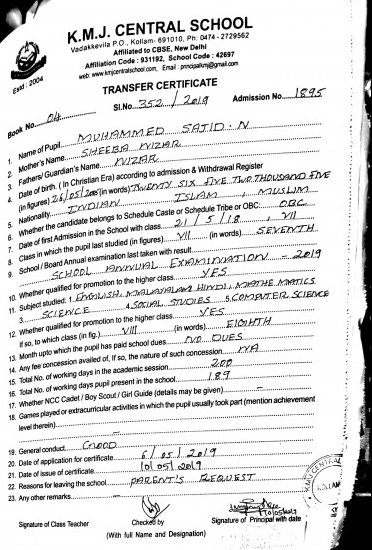 K.M.J. CENTRAL SCHOOL
Vadakkevila P.O., Kollam- 691010, Ph: 0474 - 2729562
Affiliated to CBSE, New Delhi
Affiliation Code : 931192, School Code : 42697
web: www.kmjcentralschool.com, Email : principalkmj@gmail.com
Estd : 2004
TRANSFER CERTIFICATE
Book No. 04 Sl.No. 352/2019 Admission No. 1895
1. Name of Pupil MUHAMMED SAJID.N
2. Mother's Name SHEEBA NIZAR
3. Fathers/ Guardian's Name NIZAR
4. Date of birth. ( In Christian Era) according to admission & Withdrawal Register
(in figures) 26/05/2005 (in words) TWENTY SIX FIVE TWO THOUSAND FIVE
5. Nationality INDIAN ISLAM, MUSLIM
6. Whether the candidate belongs to Schedule Caste or Schedule Tribe or OBC: OBC
7. Date of first Admission in the School with class 21/5/18, VII
8. Class in which the pupil last studied (in figures) VII (in words) SEVENTH
9. School / Board Annual examination last taken with result
SCHOOL ANNUAL EXAMINATION - 2019
10. Whether qualified for promotion to the higher class YES
11. Subject studied: 1 ENGLISH, MALAYALAM HINDI, MATHEMATICS
3. SCIENCE 4 SOCIAL STUDIES 5 COMPUTER SCIENCE
12. Whether qualified for promotion to the higher class YES
If so, to which class (in fig.) VIII (in words) EIGHTH
13. Month upto which the pupil has paid school dues NO DUES
14. Any fee concession availed of, If so, the nature of such concession N/A
15. Total No. of working days in the academic session 200
16. Total No. of working days pupil present in the school 189
17. Whether NCC Cadet / Boy Scout / Girl Guide (details may be given) -
18. Games played or extracurricular activities in which the pupil usually took part (mention achievement
level therein) -
19. General conduct GOOD
20. Date of application for certificate 6/05/2019
21. Date of issue of certificate 10/05/2019
22. Reasons for leaving the school PARENT'S REQUEST
23. Any other remarks -
Signature of Class Teacher Checked by Signature of Principal with date
(With full Name and Designation)